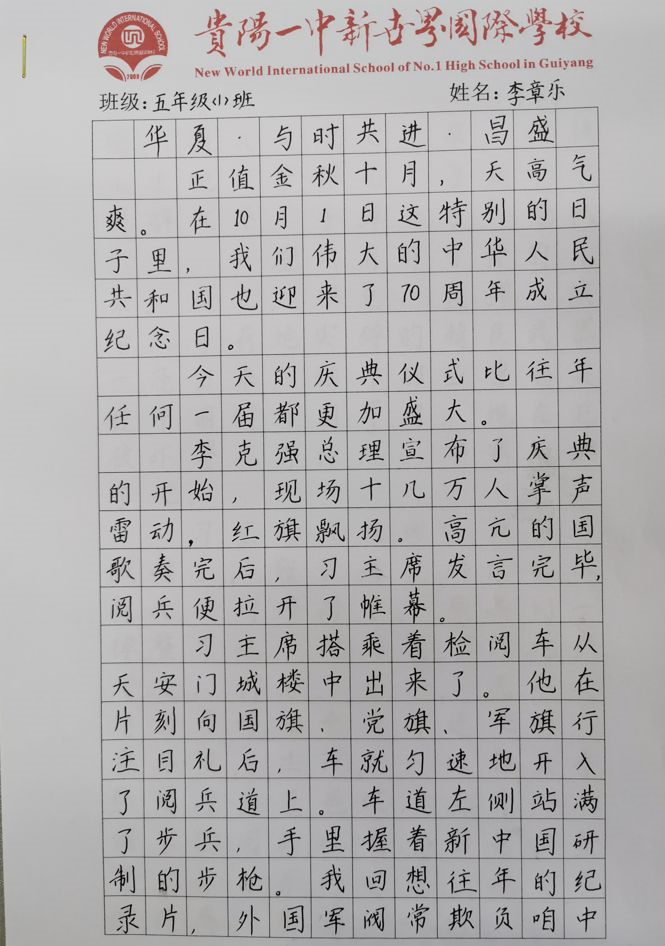 NEW WORLD INTERNATIONAL SCHOOL
2003
貴陽一中新世界國際學校
New World International School of No.1 High School in Guiyang
班级:五年级(1)班 姓名:李章乐
华夏·与时共进·昌盛
正值金秋十月,天高气
爽。在10月1日这特别的日
子里,我们伟大的中华人民
共和国也迎来了70周年成立
纪念日。
今天的庆典仪式比往年
任何一届都更加盛大。
李克强总理宣布了庆典
的开始,现场十几万人掌声
雷动,红旗飘扬。高亢的国
歌奏完后,习主席发言完毕,
阅兵便拉开了帷幕。
习主席搭乘着检阅车从
天安门城楼中出来了。他在
片刻向国旗、党旗、军旗行
注目礼后,车就匀速地开入
了阅兵道上。车道左侧站满
了步兵,手里握着新中国研
制的步枪。我回想往年的纪
录片,外国军阀常欺负咱中